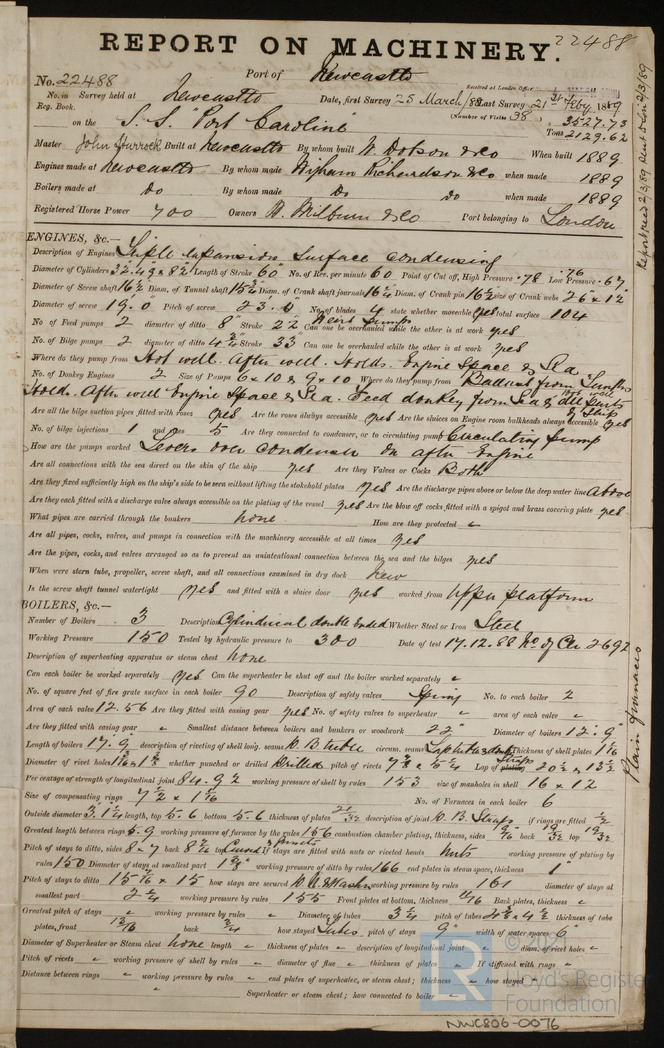 22488
REPORT ON MACHINERY.
No. 22488 Port of Newcastle
Received at London Office
No. in Survey held at Newcastle Date, first Survey 25 March/88 Last Survey 21st Feby 1889
Reg. Book. (Number of Visits 38)
on the S.S. "Port Caroline" Tons 3527.73 2129.62
Master John Built at Newcastle By whom built W. Dobson & Co When built 1889
Engines made at Newcastle By whom made Wigham Richardson & Co when made 1889
Boilers made at Do By whom made Do Do when made 1889
Registered Horse Power 700 Owners W. Milburn & Co Port belonging to London
ENGINES, &c.—
Description of Engines Triple expansion Surface Condensing
Diameter of Cylinders 32".49 x 82" Length of Stroke 60" No. of Rev. per minute 60 Point of Cut off, High Pressure .78 .76 Low Pressure .67
Diameter of Screw shaft 16½ Diam. of Tunnel shaft 15½ Diam. of Crank shaft journals 16¼ Diam. of Crank pin 16½ size of Crank webs 26 x 12
Diameter of screw 19.0 Pitch of screw 23.0 No. of blades 4 state whether moveable yes total surface 104
No. of Feed pumps 2 diameter of ditto 8" Stroke 22 Weirs pumps Can one be overhauled while the other is at work yes
No. of Bilge pumps 2 diameter of ditto 4¾ Stroke 33 Can one be overhauled while the other is at work yes
Where do they pump from Hot well. After well. Holds. Engine Space & Sea
No. of Donkey Engines 2 Size of Pumps 6 x 10 & 9 x 10 Where do they pump from Ballast from
Holds. After well Engine Space & Sea. Feed donkey from Sea & all parts of Ship
Are all the bilge suction pipes fitted with roses yes Are the roses always accessible yes Are the sluices on Engine room bulkheads always accessible yes
No. of bilge injections 1 and sizes 5 Are they connected to condenser, or to circulating pump Circulating pump
How are the pumps worked Levers over condenser on after Engine
Are all connections with the sea direct on the skin of the ship yes Are they Valves or Cocks Both
Are they fixed sufficiently high on the ship's side to be seen without lifting the stokehold plates yes Are the discharge pipes above or below the deep water line above
Are they each fitted with a discharge valve always accessible on the plating of the vessel yes Are the blow off cocks fitted with a spigot and brass covering plate yes
What pipes are carried through the bunkers none How are they protected "
Are all pipes, cocks, valves, and pumps in connection with the machinery accessible at all times yes
Are the pipes, cocks, and valves arranged so as to prevent an unintentional connection between the sea and the bilges yes
When were stern tube, propeller, screw shaft, and all connections examined in dry dock New
Is the screw shaft tunnel watertight yes and fitted with a sluice door yes worked from upper platform
BOILERS, &c.—
Number of Boilers 3 Description Cylindrical double Ended Whether Steel or Iron Steel
Working Pressure 150 Tested by hydraulic pressure to 300 Date of test 17.12.88 No of Cer 2692
Description of superheating apparatus or steam chest none
Can each boiler be worked separately yes Can the superheater be shut off and the boiler worked separately "
No. of square feet of fire grate surface in each boiler 90 Description of safety valves Spring No. to each boiler 2
Area of each valve 12.56 Are they fitted with easing gear yes No. of safety valves to superheater " area of each valve "
Are they fitted with easing gear " Smallest distance between boilers and bunkers or woodwork 22" Diameter of boilers 12'.9"
Length of boilers 17'.9" description of riveting of shell long. seams D.B. treble circum. seams Lap treble & doub Thickness of shell plates 1 1/16
Diameter of rivet holes whether punched or drilled Drilled pitch of rivets Lap of plating Straps 20½ x 13½
Per centage of strength of longitudinal joint 84.92 working pressure of shell by rules 153 size of manholes in shell 16 x 12
Size of compensating rings 7½ x 1 1/16 No. of Furnaces in each boiler 6
Outside diameter 3'.1¼ length, top 5.6 bottom 5.6 thickness of plates 21/32 description of joint D.B. Straps if rings are fitted ½
Greatest length between rings 5.9 working pressure of furnace by the rules 156 combustion chamber plating, thickness, sides 19/16 back 19/32 top 19/32
Pitch of stays to ditto, sides 8 x 7 back 8½ top Curved If stays are fitted with nuts or riveted heads nuts working pressure of plating by
rules 150 Diameter of stays at smallest part 1⅜ working pressure of ditto by rules 166 end plates in steam space, thickness 1"
Pitch of stays to ditto 15 7/16 x 15 how stays are secured D.N. & Washrs working pressure by rules 161 diameter of stays at
smallest part 2¼ working pressure by rules 155 Front plates at bottom, thickness 11/16 Back plates, thickness "
Greatest pitch of stays " working pressure by rules " Diameter of tubes 3¼ pitch of tubes 4½ x 4½ thickness of tube
plates, front 13/16 back ¾ how stayed Tubes pitch of stays 9" width of water spaces 6"
Diameter of Superheater or Steam chest none length " thickness of plates " description of longitudinal joint " diam. of rivet holes "
Pitch of rivets " working pressure of shell by rules " diameter of flue " thickness of plates " If stiffened with rings "
Distance between rings " working pressure by rules " end plates of superheater, or steam chest; thickness " how stayed "
" Superheater or steam chest; how connected to boiler "
Plain furnaces
© 2021
Lloyd's Register
Foundation
NWC806-0076